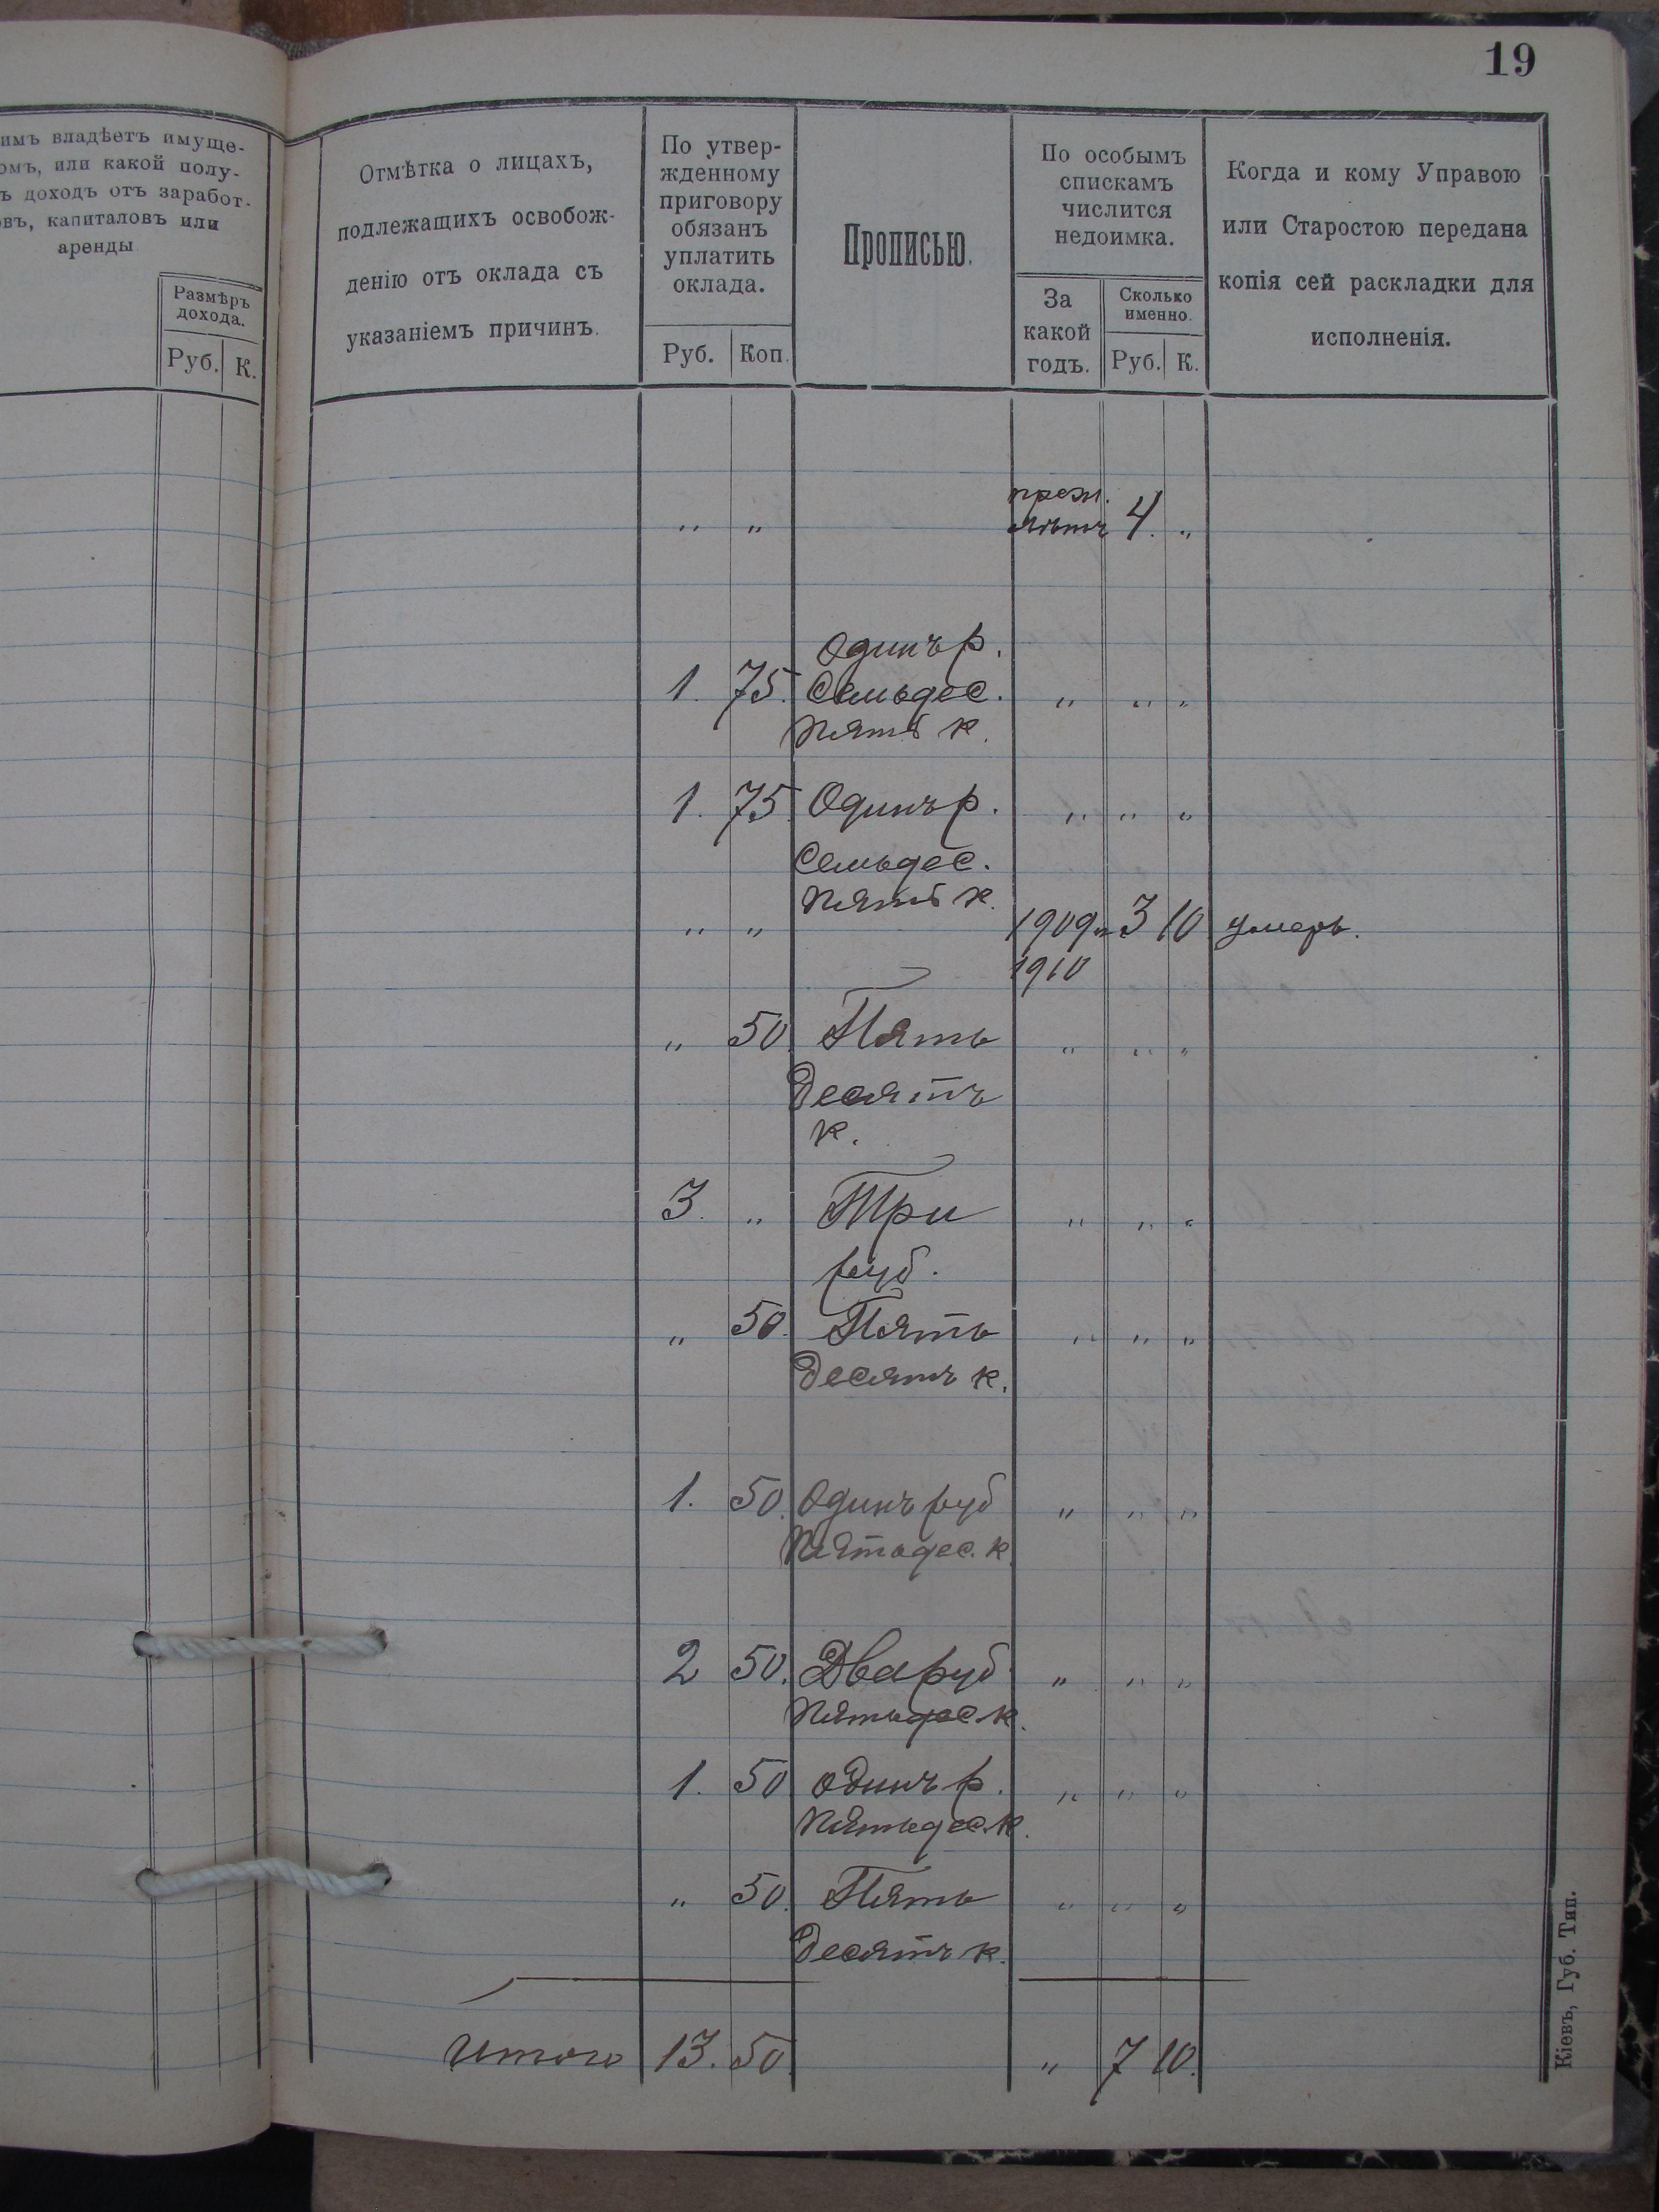 19
имъ владѣетъ имуще-
омъ, или какой полу-
ъ доходъ отъ заработ-
овъ, капиталовъ или
аренды
Размѣръ
дохода.
Руб. К.
Отмѣтка о лицахъ,
подлежащихъ освобож-
денію отъ оклада съ
указаніемъ причинъ.
По утвер-
жденному
приговору
обязанъ
уплатить
оклада.
Руб. Коп.
Прописью.
По особымъ
спискамъ
числится
недоимка.
За
какой
годъ.
Сколько
именно.
Руб. К.
Когда и кому Управою
или Старостою передана
копія сей раскладки для
исполненія.
преж.
" " лѣтъ 4. "
Одинъ р.
1. 75. Семьдес. " " "
Пять к.
1. 75. Одинъ р. " " "
Семьдес.
Пять к.
" " 1909 и 3 10 умеръ.
1910
" 50. Пять " " "
десятъ
к.
3. " Три " " "
руб.
" 50. Пять " " "
десятъ к.
1. 50. Одинъ руб " " "
Пятьдес. к.
2 50. Два руб " " "
Пятьдес к.
1. 50 одинъ р. " " "
Пятьдес. к.
" 50. Пять " " "
десятъ к.
Итого 13. 50. " 7 10.
Кіевъ, Губ. Тип.